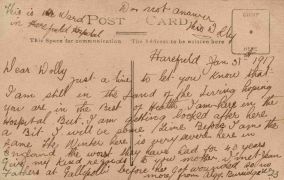 This is the Ward
in Harefield Hospital
Do not answer
POST CARD
This Space for communication
The Address to be written here
Harefield Jan 31st 1917
Dear Dolly
Just a line to let you know that
I am still in the Land of the Living hoping
you are in the Best of Health. I am here in the
Hospital But I am getting looked after here
a Bit. I will be alone Before I am the
same The Winter here is very severe here in
England the worst they have had for 40 years
Give my Kind regards to you mother. I met Jean
Fathers at Gallipoli before he got wounded
from